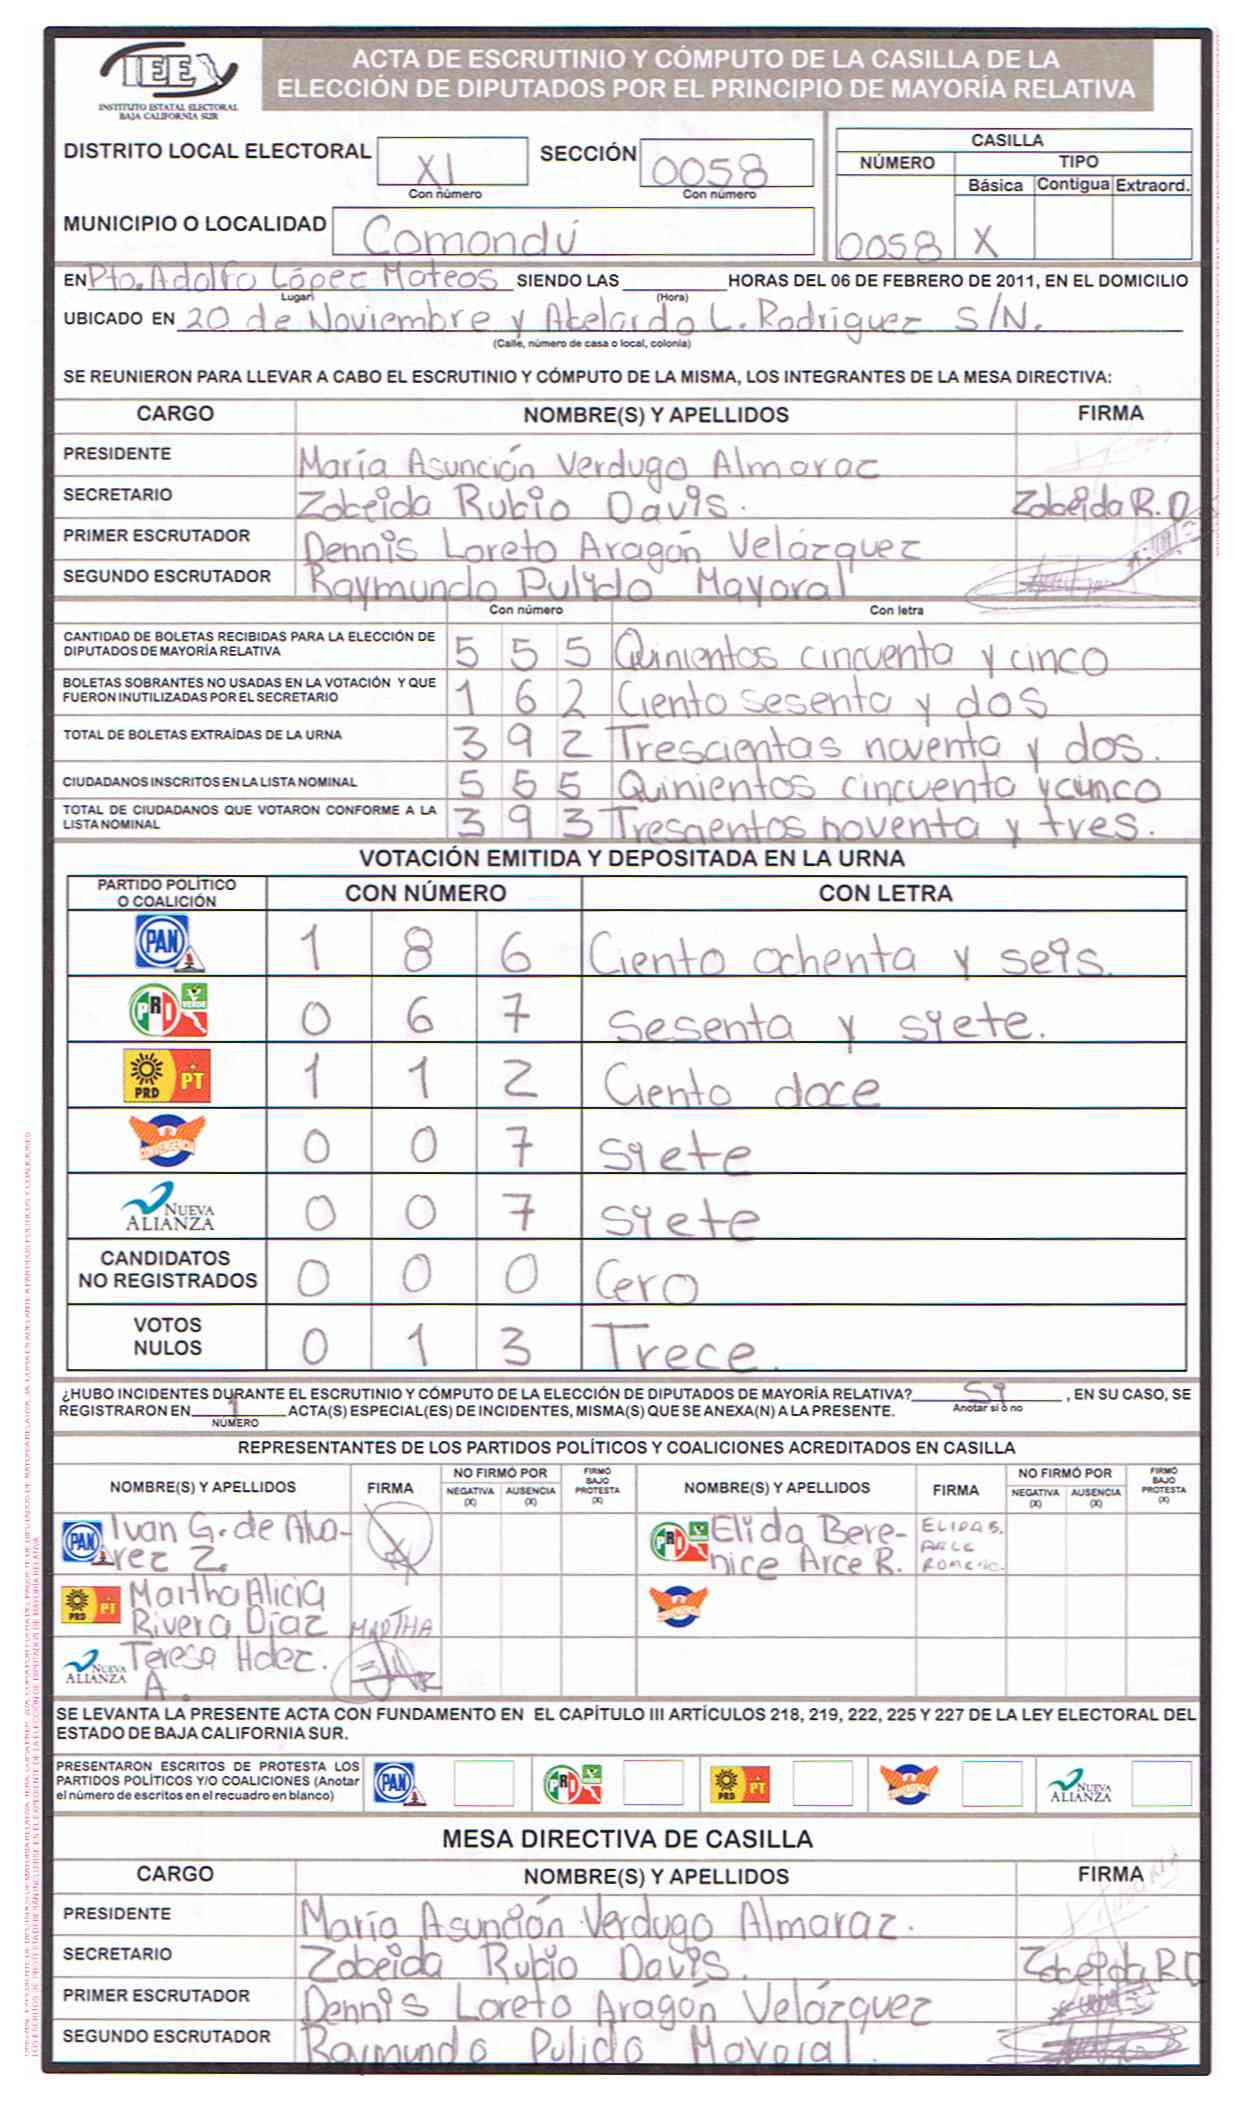 IEE
INSTITUTO ESTATAL ELECTORAL
BAJA CALIFORNIA SUR
ACTA DE ESCRUTINIO Y CÓMPUTO DE LA CASILLA DE LA
ELECCIÓN DE DIPUTADOS POR EL PRINCIPIO DE MAYORÍA RELATIVA
DISTRITO LOCAL ELECTORAL XI SECCIÓN 0058
Con número Con número
CASILLA
NÚMERO TIPO
Básica Contigua Extraord.
0058 X
MUNICIPIO O LOCALIDAD Comondú
EN Pto. Adolfo López Mateos SIENDO LAS HORAS DEL 06 DE FEBRERO DE 2011, EN EL DOMICILIO
Lugar) (Hora)
UBICADO EN 20 de Noviembre y Abelardo L. Rodríguez S/N.
(Calle, número de casa o local, colonia)
SE REUNIERON PARA LLEVAR A CABO EL ESCRUTINIO Y CÓMPUTO DE LA MISMA, LOS INTEGRANTES DE LA MESA DIRECTIVA:
CARGO NOMBRE(S) Y APELLIDOS FIRMA
PRESIDENTE María Asunción Verdugo Almaraz
SECRETARIO Zobeida Rubio Davis. Zobeida R. D
PRIMER ESCRUTADOR Dennis Loreto Aragón Velázquez
SEGUNDO ESCRUTADOR Raymundo Pulido Mayoral
Con número Con letra
CANTIDAD DE BOLETAS RECIBIDAS PARA LA ELECCIÓN DE
DIPUTADOS DE MAYORÍA RELATIVA 5 5 5 Quinientos cincuenta y cinco
BOLETAS SOBRANTES NO USADAS EN LA VOTACIÓN Y QUE
FUERON INUTILIZADAS POR EL SECRETARIO 1 6 2 Ciento sesenta y dos
TOTAL DE BOLETAS EXTRAÍDAS DE LA URNA 3 9 2 Trescientas noventa y dos.
CIUDADANOS INSCRITOS EN LA LISTA NOMINAL 5 5 5 Quinientos cincuenta y cinco
TOTAL DE CIUDADANOS QUE VOTARON CONFORME A LA
LISTA NOMINAL 3 9 3 Trescientos noventa y tres.
VOTACIÓN EMITIDA Y DEPOSITADA EN LA URNA
PARTIDO POLÍTICO
O COALICIÓN CON NÚMERO CON LETRA
PAN 1 8 6 Ciento ochenta y seis.
PRI VERDE 0 6 7 Sesenta y siete.
PRD PT 1 1 2 Ciento doce
CONVERGENCIA 0 0 7 Siete
NUEVA ALIANZA 0 0 7 Siete
CANDIDATOS
NO REGISTRADOS 0 0 0 Cero
VOTOS
NULOS 0 1 3 Trece.
¿HUBO INCIDENTES DURANTE EL ESCRUTINIO Y CÓMPUTO DE LA ELECCIÓN DE DIPUTADOS DE MAYORÍA RELATIVA? Si , EN SU CASO, SE
Anotar si ó no
REGISTRARON EN 1 ACTA(S) ESPECIAL(ES) DE INCIDENTES, MISMA(S) QUE SE ANEXA(N) A LA PRESENTE.
NÚMERO
REPRESENTANTES DE LOS PARTIDOS POLÍTICOS Y COALICIONES ACREDITADOS EN CASILLA
NOMBRE(S) Y APELLIDOS FIRMA NO FIRMÓ POR NEGATIVA (X) AUSENCIA (X) FIRMÓ BAJO PROTESTA (X) NOMBRE(S) Y APELLIDOS FIRMA NO FIRMÓ POR NEGATIVA (X) AUSENCIA (X) FIRMÓ BAJO PROTESTA (X)
PAN Ivan G. de Alva-
rez Z.
PRI VERDE Elida Bere-
nice Arce R. ELIDA B.
ARCE
ROMERO.
PRD PT Martha Alicia
Rivera Díaz MARTHA
NUEVA ALIANZA Teresa Hdez.
A.
SE LEVANTA LA PRESENTE ACTA CON FUNDAMENTO EN EL CAPÍTULO III ARTÍCULOS 218, 219, 222, 225 Y 227 DE LA LEY ELECTORAL DEL
ESTADO DE BAJA CALIFORNIA SUR.
PRESENTARON ESCRITOS DE PROTESTA LOS
PARTIDOS POLÍTICOS Y/O COALICIONES (Anotar
el número de escritos en el recuadro en blanco)
PAN PRI VERDE PRD PT CONVERGENCIA NUEVA ALIANZA
MESA DIRECTIVA DE CASILLA
CARGO NOMBRE(S) Y APELLIDOS FIRMA
PRESIDENTE María Asunción Verdugo Almaraz.
SECRETARIO Zobeida Rubio Davis. Zobeida R D
PRIMER ESCRUTADOR Dennis Loreto Aragón Velázquez
SEGUNDO ESCRUTADOR Raymundo Pulido Mayoral.